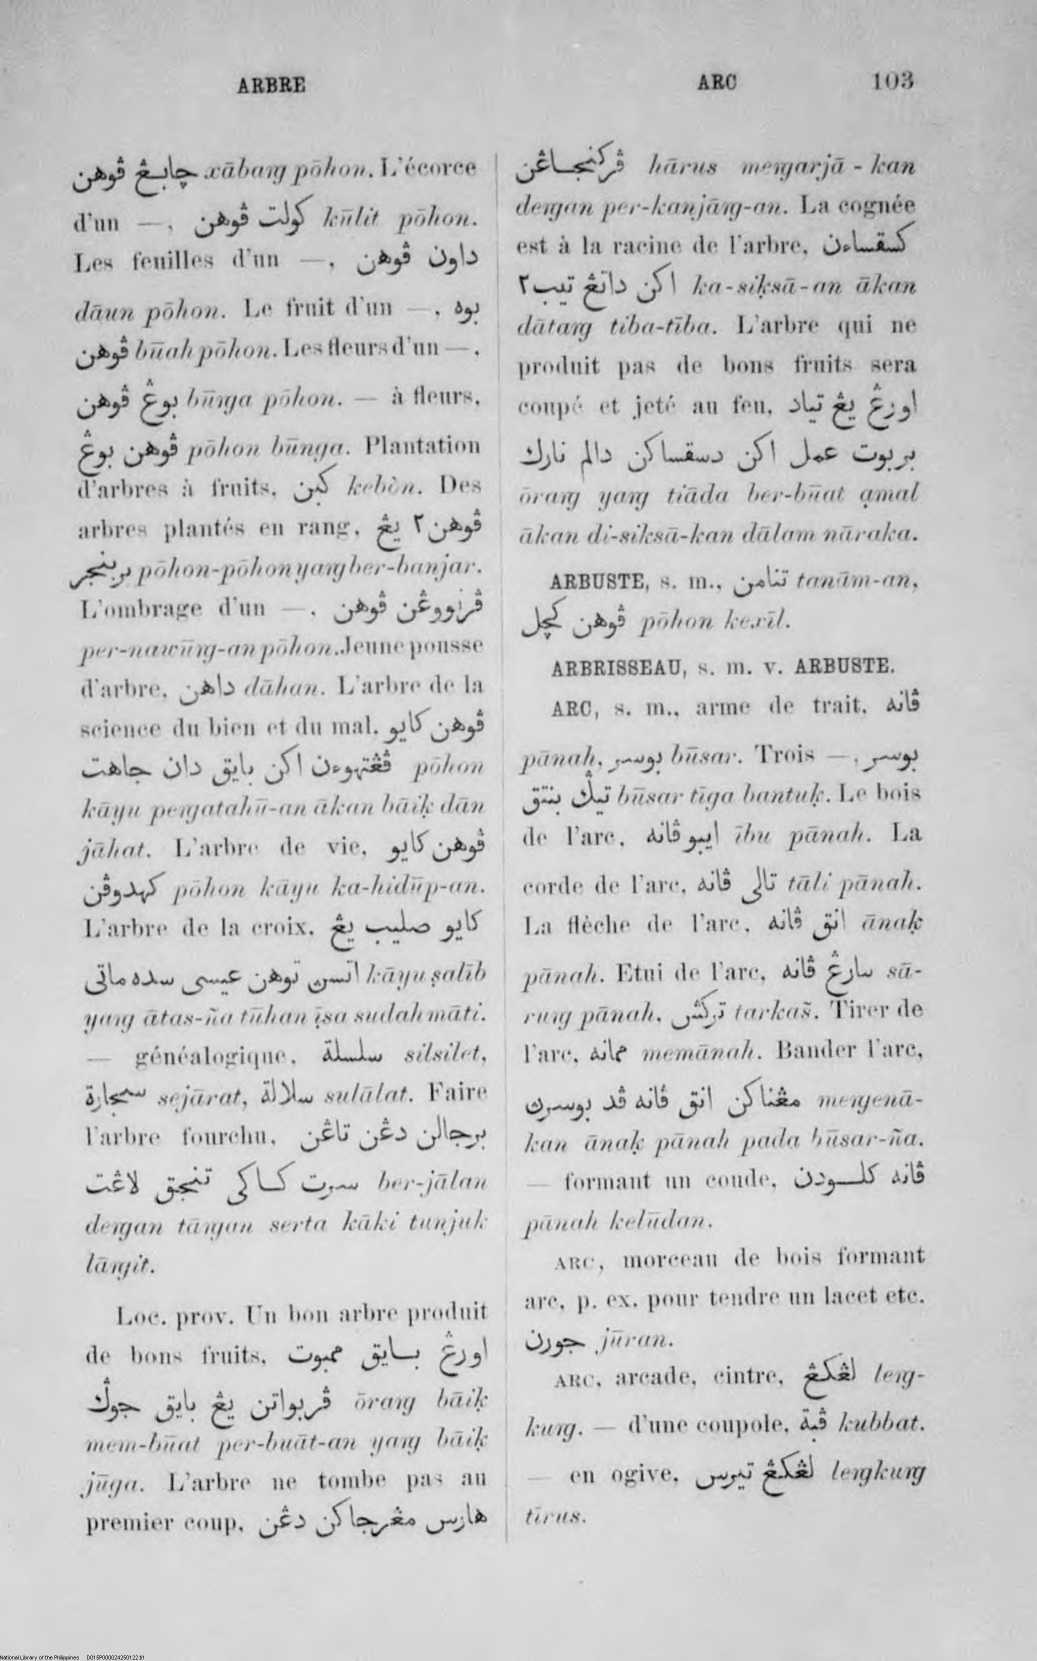 ARBRE
ARC 103
چابڠ ڤوهن xābaŋ pōhon. L'écorce
d'un —, کولت ڤوهن kūlit pōhon.
Les feuilles d'un —, داون ڤوهن
dāun pōhon. Le fruit d'un —, بوه
ڤوهن būah pōhon. Les fleurs d'un —,
بوڠ ڤوهن būŋa pōhon. — à fleurs,
ڤوهن بوڠ pōhon būnga. Plantation
d'arbres à fruits, کبن kebòn. Des
arbres plantés en rang, ڤوهن٢ يڠ
بربنجر pōhon-pōhon yaŋ ber-banjar.
L'ombrage d'un —, ڤرناووڠن ڤوهن
per-nawūŋ-an pōhon. Jeune pousse
d'arbre, داهن dāhan. L'arbre de la
science du bien et du mal, ڤوهن کايو
ڤڠتهوءن اکن بايق دان جاهت pōhon
kāyu peŋatahū-an ākan bāiḳ dān
jāhat. L'arbre de vie, ڤوهن کايو
کهدوڤن pōhon kāyu ka-hidūp-an.
L'arbre de la croix, کايو صليب يڠ
اتسڽ توهن عيسى سده ماتى kāyu ṣalīb
yaŋ ātas-ña tūhan ịsa sudah māti.
— généalogique, سلسلة silsilet,
سجارة sejārat, سلالة sulālat. Faire
l'arbre fourchu, برجالن دڠن تاڠن
سرت کاکى تنجق لاڠت ber-jālan
deŋan tāŋan serta kāki tunjuk
lāŋit.
Loc. prov. Un bon arbre produit
de bons fruits, اورڠ بايق ممبوت
ڤربواتن يڠ بايق جوݢ ōraŋ bāiḳ
mem-būat per-buāt-an yaŋ bāiḳ
jūga. L'arbre ne tombe pas au
premier coup, هارس مڠرجاکن دڠن
ڤرکنجاڠن hārus meŋarjā-kan
deŋan per-kanjāŋ-an. La cognée
est à la racine de l'arbre, کسقساءن
اکن داتڠ تيب٢ ka-siḳsā-an ākan
dātaŋ tiba-tība. L'arbre qui ne
produit pas de bons fruits sera
coupé et jeté au feu, اورڠ يڠ تياد
بربوت عمل اکن دسقساکن دالم نارك
ōraŋ yaŋ tiāda ber-būat ạmal
ākan di-siksā-kan dālam nāraka.
ARBUSTE, s. m., تنامن tanām-an,
ڤوهن کچل pōhon kexīl.
ARBRISSEAU, s. m. v. ARBUSTE.
ARC, s. m., arme de trait, ڤانه
pānah, بوسر būsar. Trois —, بوسر
تيݢ بنتق būsar tīga bantuḳ. Le bois
de l'arc, ايبو ڤانه ību pānah. La
corde de l'arc, تالى ڤانه tāli pānah.
La flèche de l'arc, انق ڤانه ānaḳ
pānah. Etui de l'arc, سارڠ ڤانه sā-
ruŋ pānah, ترکش tarkaš. Tirer de
l'arc, ممانه memānah. Bander l'arc,
مڠناکن انق ڤانه ڤد بوسرڽ meŋenā-
kan ānaḳ pānah pada būsar-ña.
— formant un coude, ڤانه کلودن
pānah kelūdan.
ARC, morceau de bois formant
arc, p. ex. pour tendre un lacet etc.
جورن jūran.
ARC, arcade, cintre, لڠکڠ leŋ-
kuŋ. — d'une coupole, قبة kubbat.
— en ogive, لڠکڠ تيرس leŋkuŋ
tīrus.
National Library of the Philippines